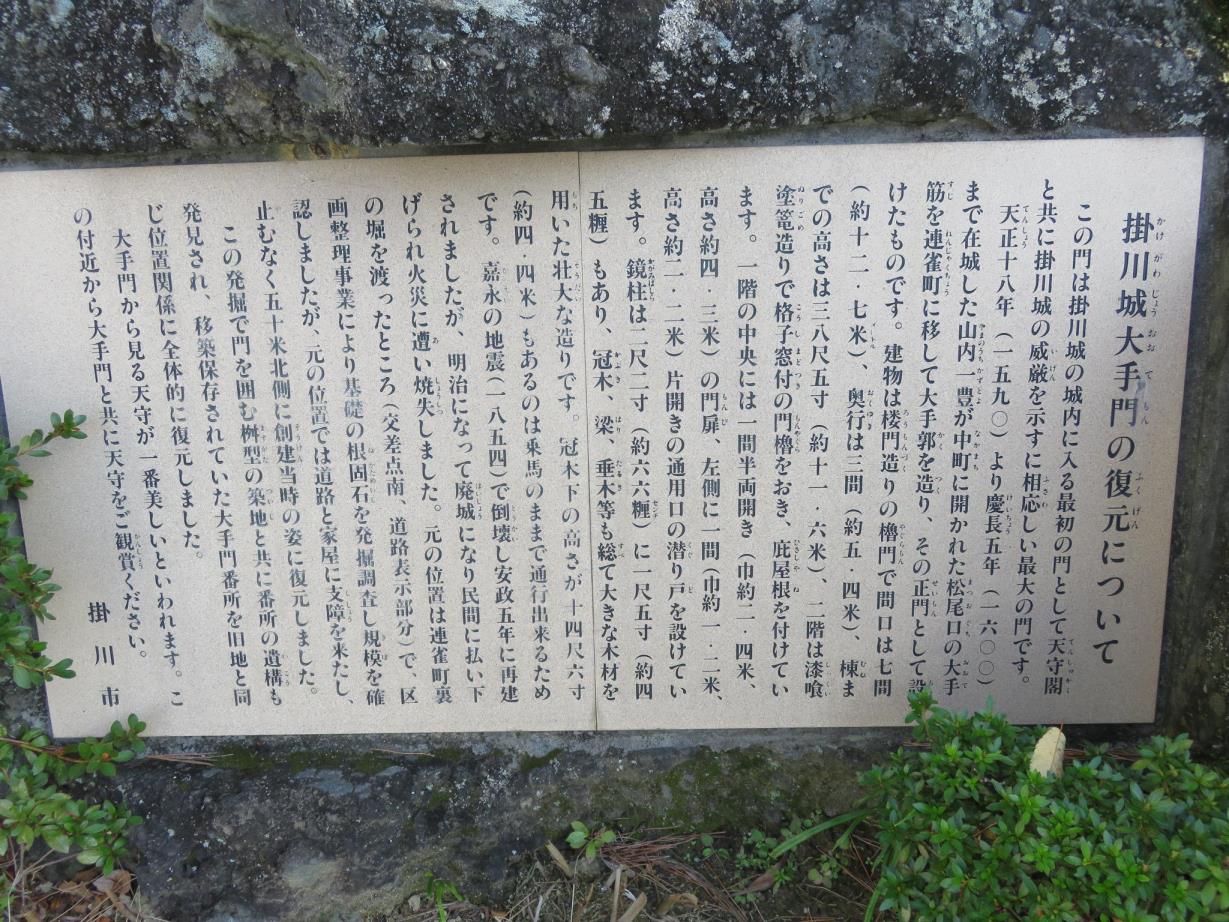 掛川城大手門の復元について
この門は掛川城の城内に入る最初の門として天守閣
と共に掛川城の威厳を示すに相応しい最大の門です。
天正十八年（一五九〇）より慶長五年（一六〇〇）
まで在城した山内一豊が中町に開かれた松尾口の大手
筋を連雀町に移して大手郭を造り、その正門として設
けたものです。建物は楼門造りの櫓門で間口は七間
（約十二・七米）、奥行は三間（約五・四米）、棟ま
での高さは三八尺五寸（約十一・六米）、二階は漆喰
塗篭造りで格子窓付の門櫓をおき、庇屋根を付けてい
ます。一階の中央には一間半両開き（巾約二・四米、
高さ約四・三米）の門扉、左側に一間（巾約一・二米、
高さ約二・二米）片開きの通用口の潜り戸を設けてい
ます。鏡柱は二尺二寸（約六六糎）に一尺五寸（約四
五糎）もあり、冠木、梁、垂木等も総て大きな木材を
用いた壮大な造りです。冠木下の高さが十四尺六寸
（約四・四米）もあるのは乗馬のままで通行出来るため
です。嘉永の地震（一八五四）で倒壊し安政五年に再建
されましたが、明治になって廃城になり民間に払い下
げられ火災に遭い焼失しました。元の位置は連雀町裏
の堀を渡ったところ（交差点南、道路表示部分）で、区
画整理事業により基礎の根固石を発掘調査し規模を確
認しましたが、元の位置では道路と家屋に支障を来たし、
止むなく五十米北側に創建当時の姿に復元しました。
この発掘で門を囲む桝型の築地と共に番所の遺構も
発見され、移築保存されていた大手門番所を旧地と同
じ位置関係に全体的に復元しました。
大手門から見る天守が一番美しいといわれます。こ
の付近から大手門と共に天守をご観賞ください。
掛川市